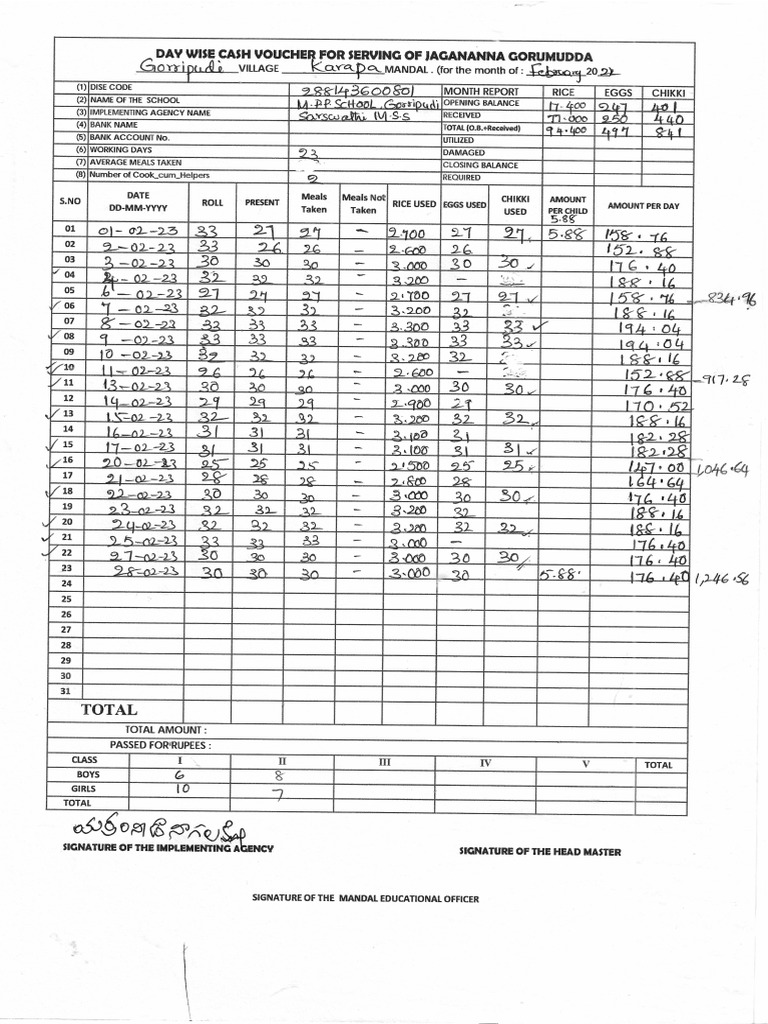 DAY WISE CASH VOUCHER FOR SERVING OF JAGANANNA GORUMUDDA
Gorripudi VILLAGE Karapa MANDAL . (for the month of : February 2022
(1) DISE CODE 288143600801 MONTH REPORT RICE EGGS CHIKKI
(2) NAME OF THE SCHOOL M.P.P. SCHOOL, Gorripudi OPENING BALANCE 17.400 247 401
(3) IMPLEMENTING AGENCY NAME Sarswathi M.S.S RECEIVED 77.000 250 440
(4) BANK NAME TOTAL (O.B.+Received) 94.400 497 841
(5) BANK ACCOUNT No. UTILIZED
(6) WORKING DAYS 23 DAMAGED
(7) AVERAGE MEALS TAKEN CLOSING BALANCE
(8) Number of Cook_cum_Helpers 2 REQUIRED
S.NO DATE DD-MM-YYYY ROLL PRESENT Meals Taken Meals Not Taken RICE USED EGGS USED CHIKKI USED AMOUNT PER CHILD 5.88 AMOUNT PER DAY
01 01-02-23 33 27 27 - 2.700 27 27 5.88 158.76
02 2-02-23 33 26 26 - 2.600 26 152.88
03 3-02-23 30 30 30 - 3.000 30 30 176.40
04 4-02-23 32 32 32 - 3.200 - 188.16
05 6-02-23 27 27 27 - 2.700 27 27 158.76 834.96
06 7-02-23 32 32 32 - 3.200 32 188.16
07 8-02-23 33 33 33 - 3.300 33 33 194.04
08 9-02-23 33 33 33 - 3.300 33 33 194.04
09 10-02-23 32 32 32 - 3.200 32 188.16
10 11-02-23 26 26 26 - 2.600 - 152.88 917.28
11 13-02-23 30 30 30 - 3.000 30 30 176.40
12 14-02-23 29 29 29 - 2.900 29 170.52
13 15-02-23 32 32 32 - 3.200 32 32 188.16
14 16-02-23 31 31 31 - 3.100 31 182.28
15 17-02-23 31 31 31 - 3.100 31 31 182.28
16 20-02-23 25 25 25 - 2.500 25 25 147.00 1,046.64
17 21-02-23 28 28 28 - 2.800 28 164.64
18 22-02-23 30 30 30 - 3.000 30 30 176.40
19 23-02-23 32 32 32 - 3.200 32 188.16
20 24-02-23 32 32 32 - 3.200 32 32 188.16
21 25-02-23 33 33 33 - 3.000 - 176.40
22 27-02-23 30 30 30 - 3.000 30 30 176.40
23 28-02-23 30 30 30 - 3.000 30 5.88 176.40 1,246.56
24
25
26
27
28
29
30
31
TOTAL
TOTAL AMOUNT :
PASSED FOR RUPEES :
CLASS I II III IV V TOTAL
BOYS 6 8
GIRLS 10 7
TOTAL
SIGNATURE OF THE IMPLEMENTING AGENCY
SIGNATURE OF THE HEAD MASTER
SIGNATURE OF THE MANDAL EDUCATIONAL OFFICER